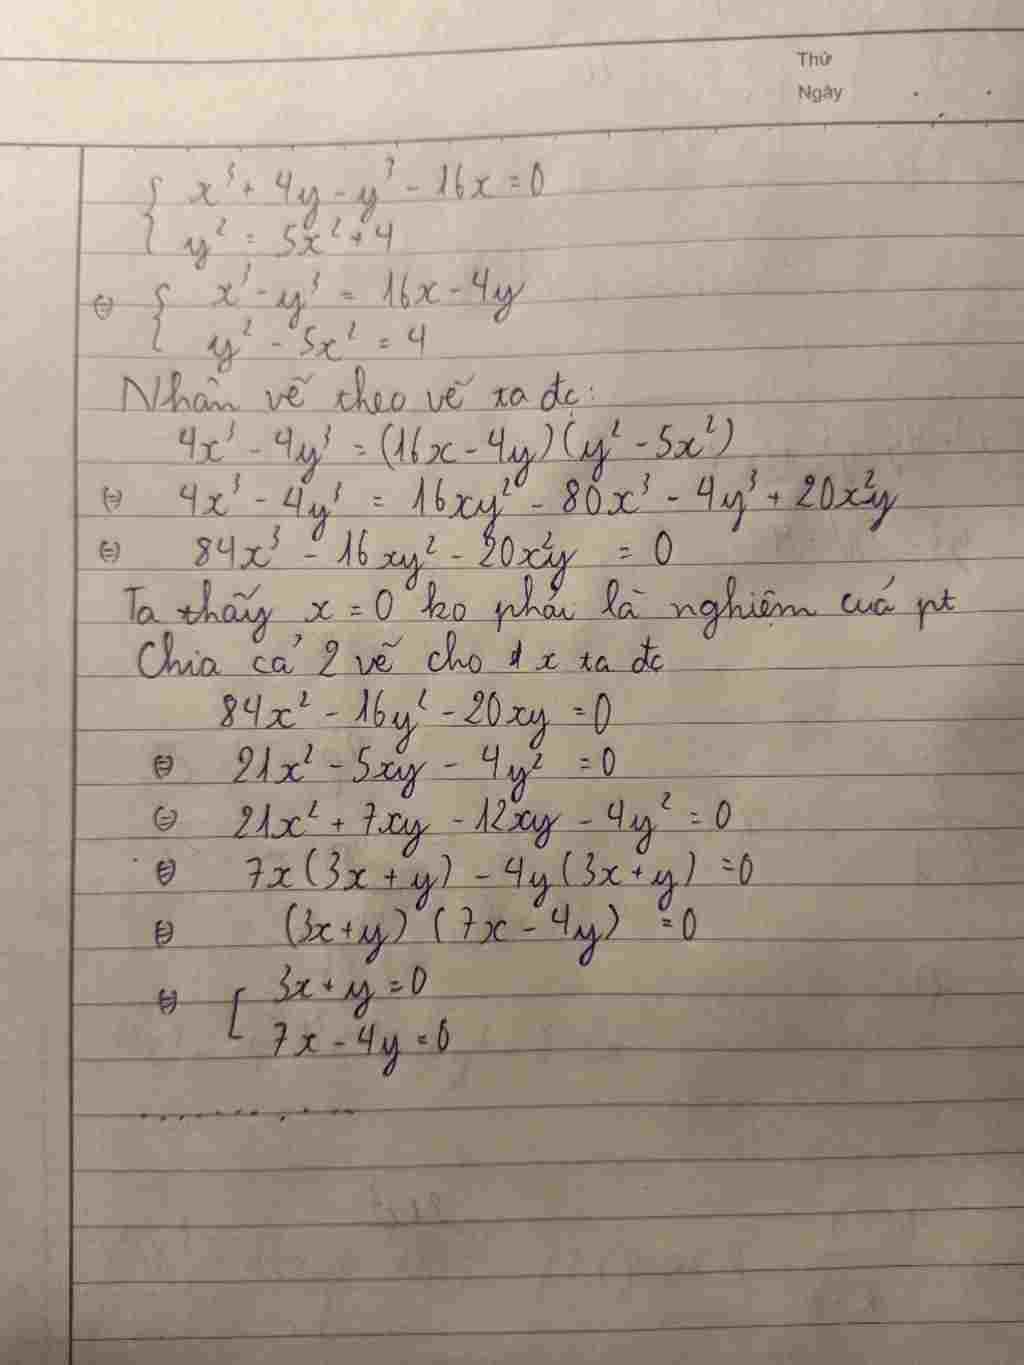 Thứ
Ngày
{ x³ + 4y - y³ - 16x = 0
{ y² = 5x² + 4
⇔ { x³ - y³ = 16x - 4y
{ y² - 5x² = 4
Nhân vế theo vế ta đc:
4x³ - 4y³ = (16x - 4y)(y² - 5x²)
⇔ 4x³ - 4y³ = 16xy² - 80x³ - 4y³ + 20x²y
⇔ 84x³ - 16xy² - 20x²y = 0
Ta thấy x = 0 ko phải là nghiệm của pt
Chia cả 2 vế cho x ta đc
84x² - 16y² - 20xy = 0
⇔ 21x² - 5xy - 4y² = 0
⇔ 21x² + 7xy - 12xy - 4y² = 0
⇔ 7x(3x + y) - 4y(3x + y) = 0
⇔ (3x + y) (7x - 4y) = 0
⇔ [ 3x + y = 0
7x - 4y = 0
..............